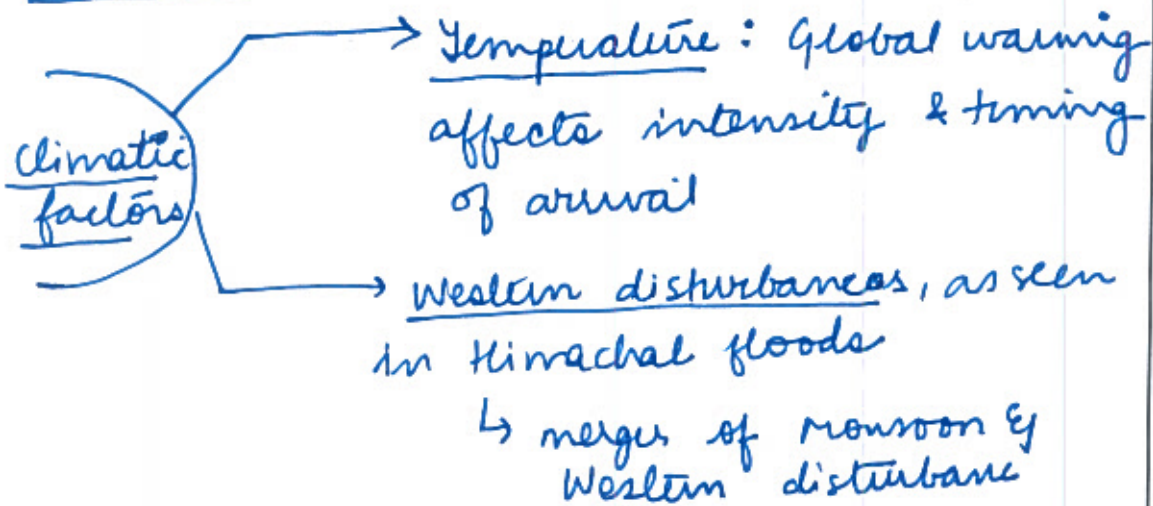 Climatic
factors
→ Temperature : Global warmig
affects intensity & timing
of arrival
→ Western disturbances, as seen
in Himachal floods
↳ merges of monsoon &
Western disturbanc